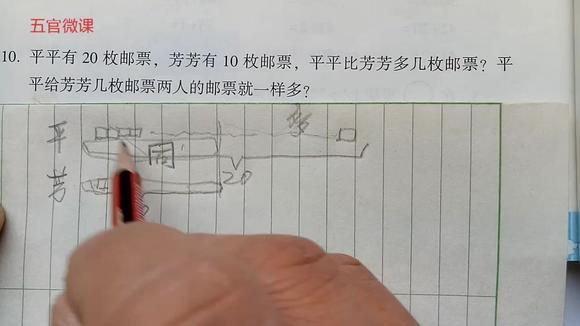 五官微课
10. 平平有 20 枚邮票，芳芳有 10 枚邮票，平平比芳芳多几枚邮票？平
平给芳芳几枚邮票两人的邮票就一样多？
多
平
同
20
芳